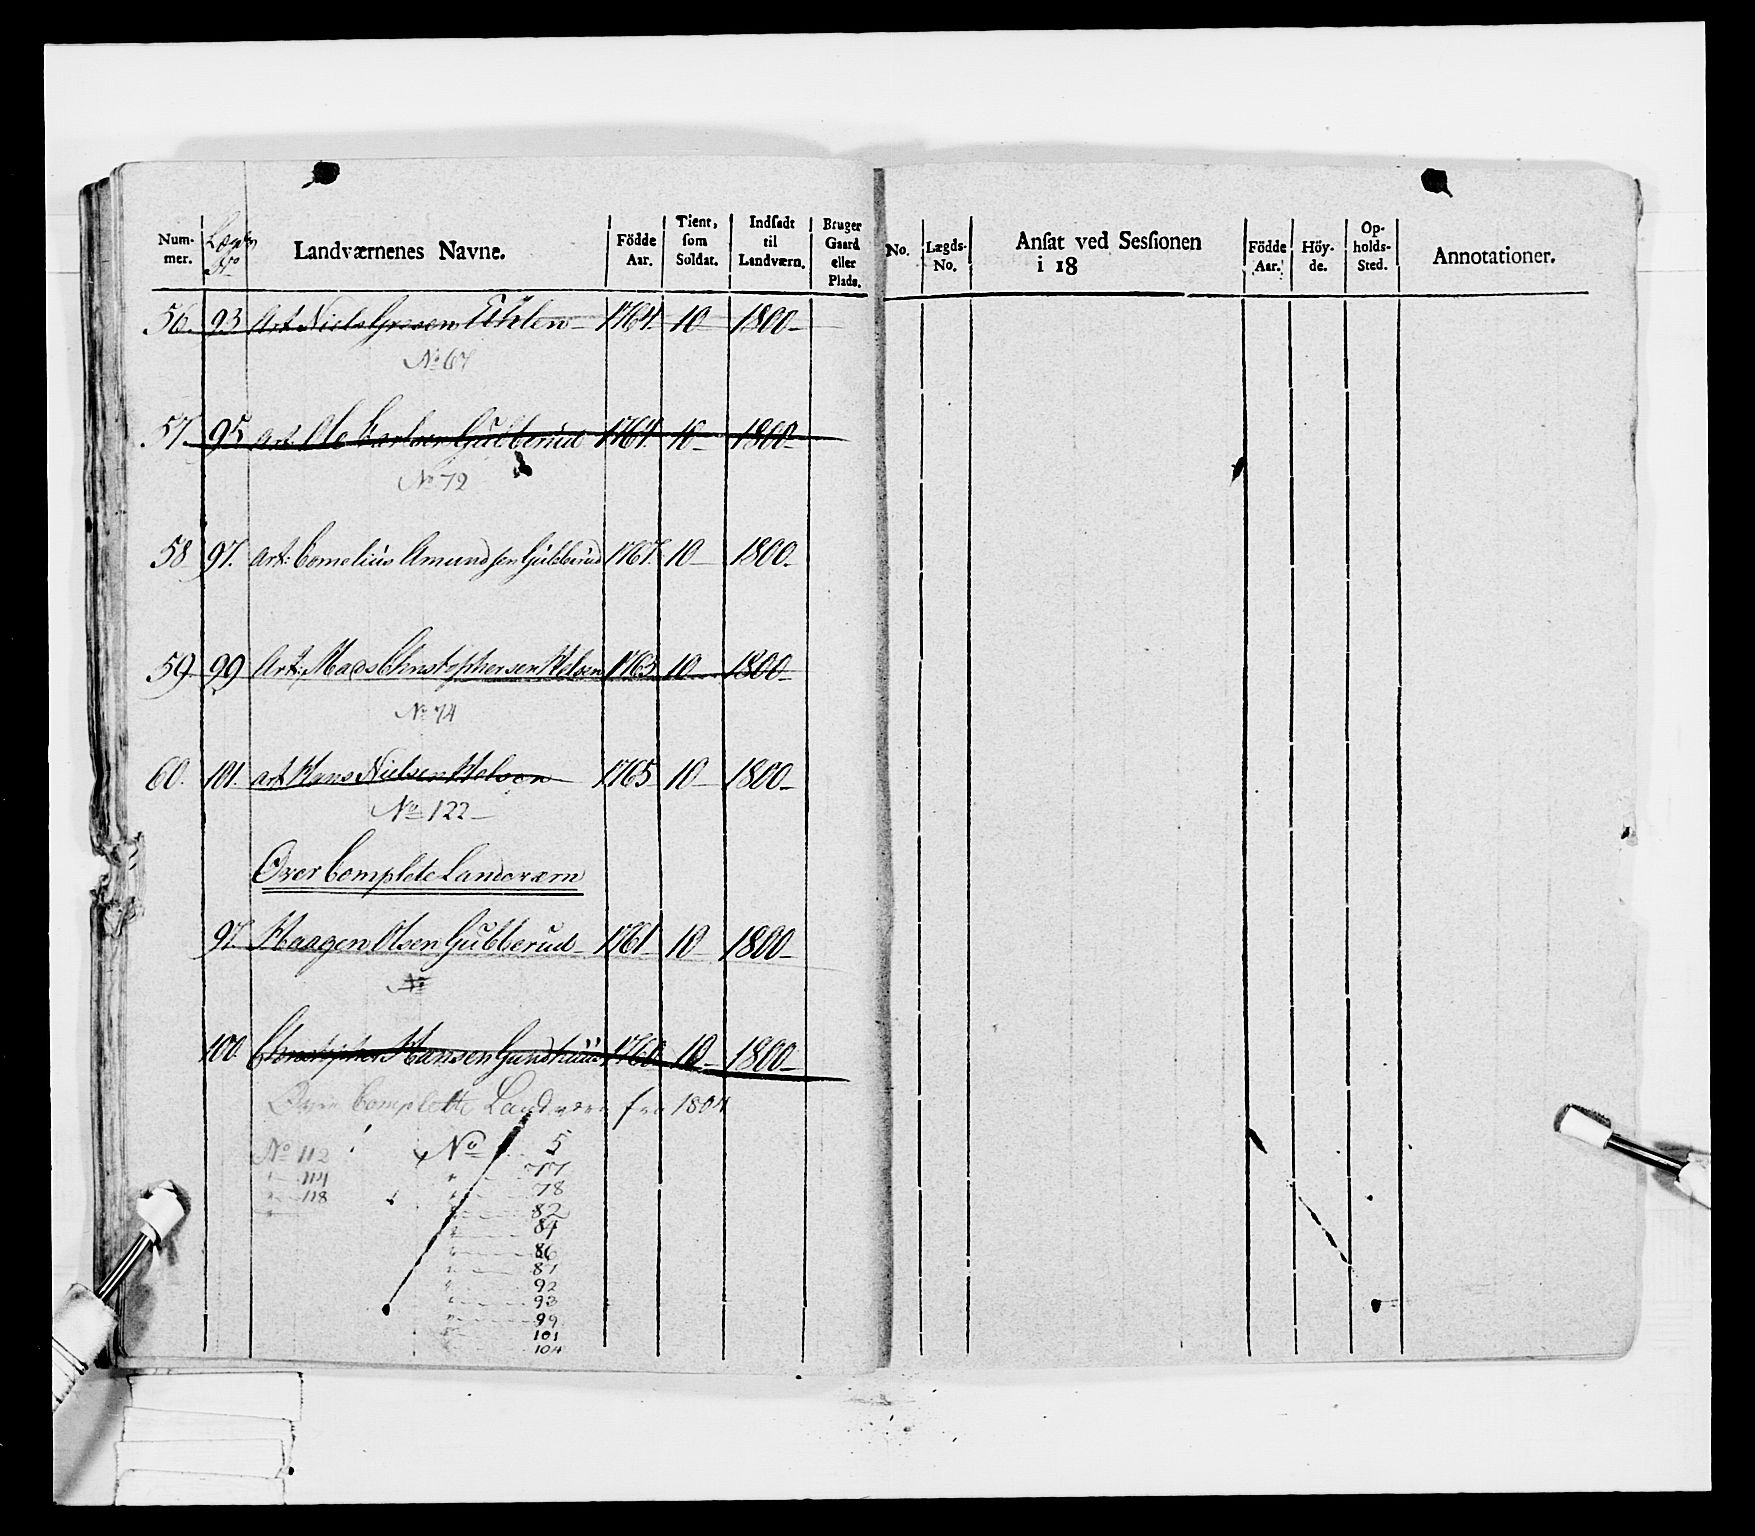 Num-
mer.
No
Landværnenes Navne.
Födde
Aar.
Tient,
som
Soldat.
Indsadt
til
Landværn.
Bruger
Gaard
eller
Plads.
No.
Lægds-
No.
Ansat ved Sessionen
i 18
Födde
Aar.
Höy-
de.
Op-
holds-
Sted.
Annotationer.
56. 93 Art Niels 1764. 10 1800
No 67
57. 95 art Ole Gubberud 1764. 10 1800
No 72
58 97. art: Cornelius Amundsen Gubberud 1767. 10 1800.
59. 99 Art: Mads Christophersen 1765. 10 1800
No 74
60. 101. art Hans Nielsen 1765 10 1800
No 122
Over Complete Landværn
97 Haagen Olsen Gubberud 1761 10 1800
No
100. Christopher Hansen 1760 10 1800
Over Complette Landværn fra 1804
No 112 No 5
" 114 " 77
" 118 " 78
" 82
" 84
" 86
" 87
" 92
" 93
" 99
" 101
104